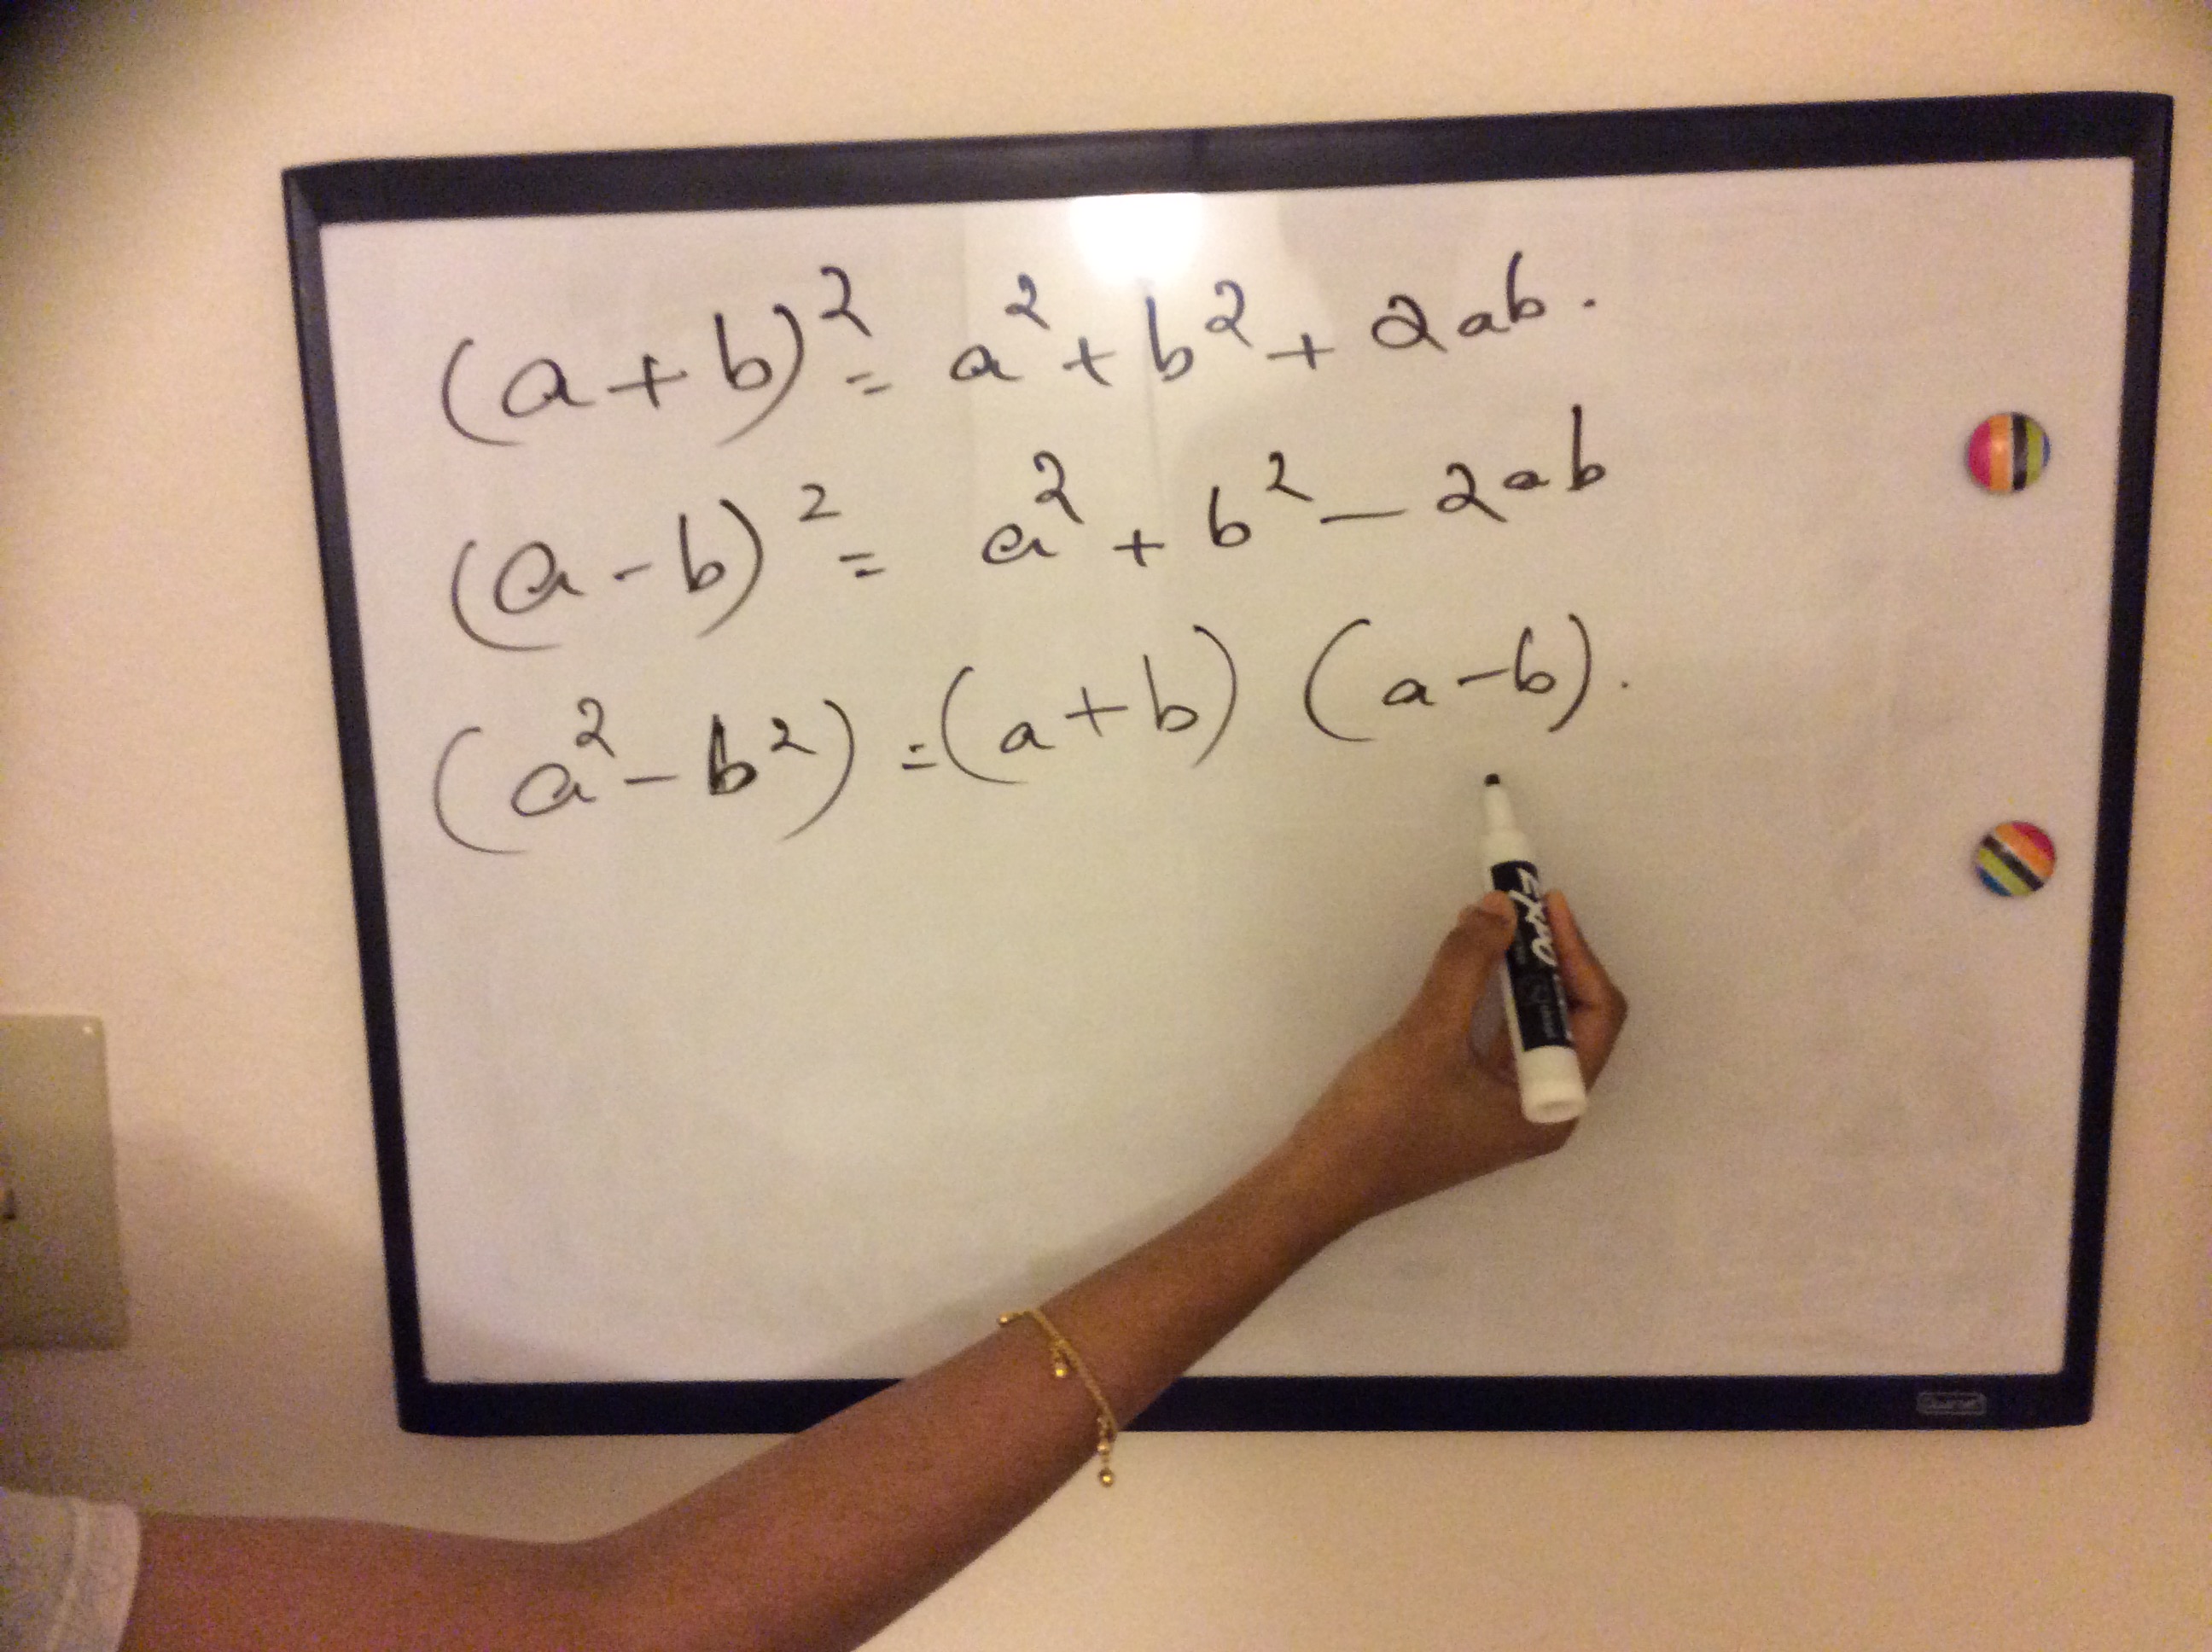 (a+b)² = a² + b² + 2ab.
(a-b)² = a² + b² - 2ab
(a² - b²) = (a+b) (a-b).
EXPO